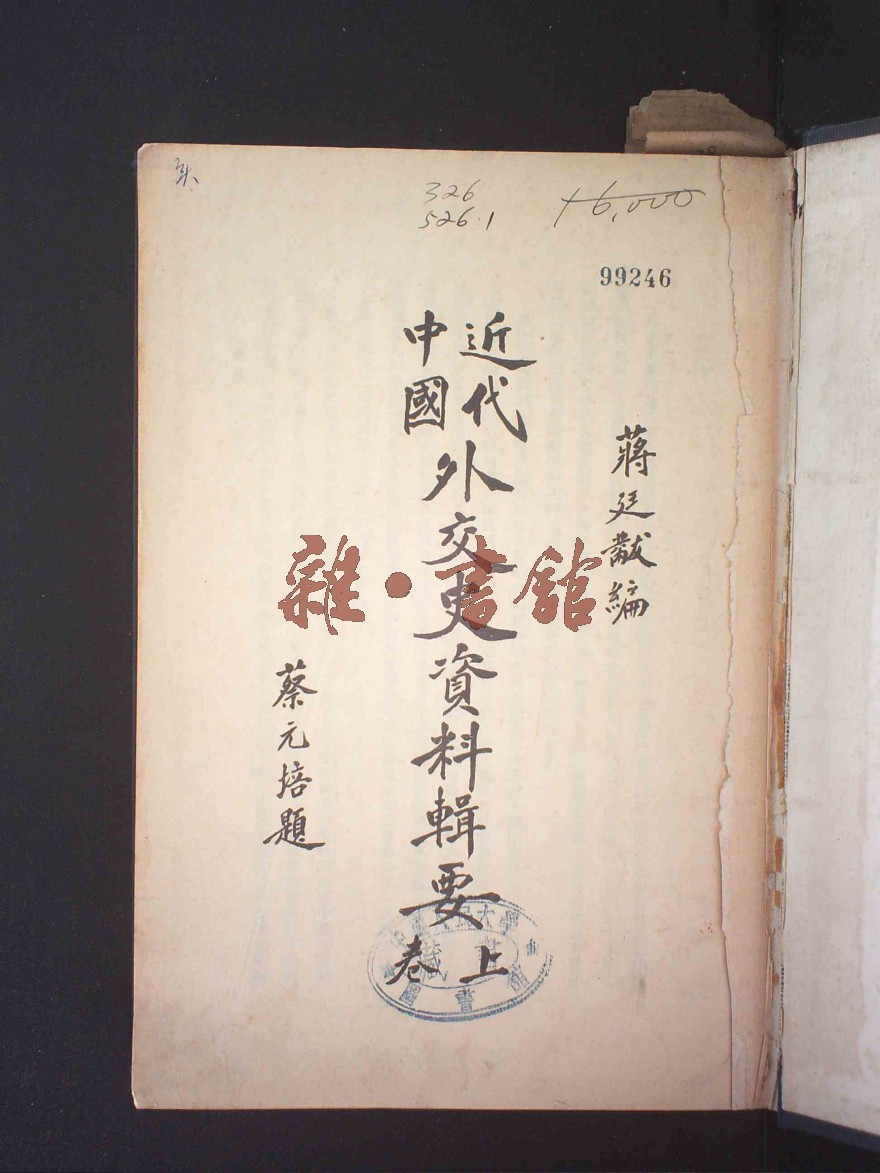 326
526.1
16,000
99246
蔣廷黻編
近代
中國
外交史資料輯要
上卷
蔡元培題
雜·書館